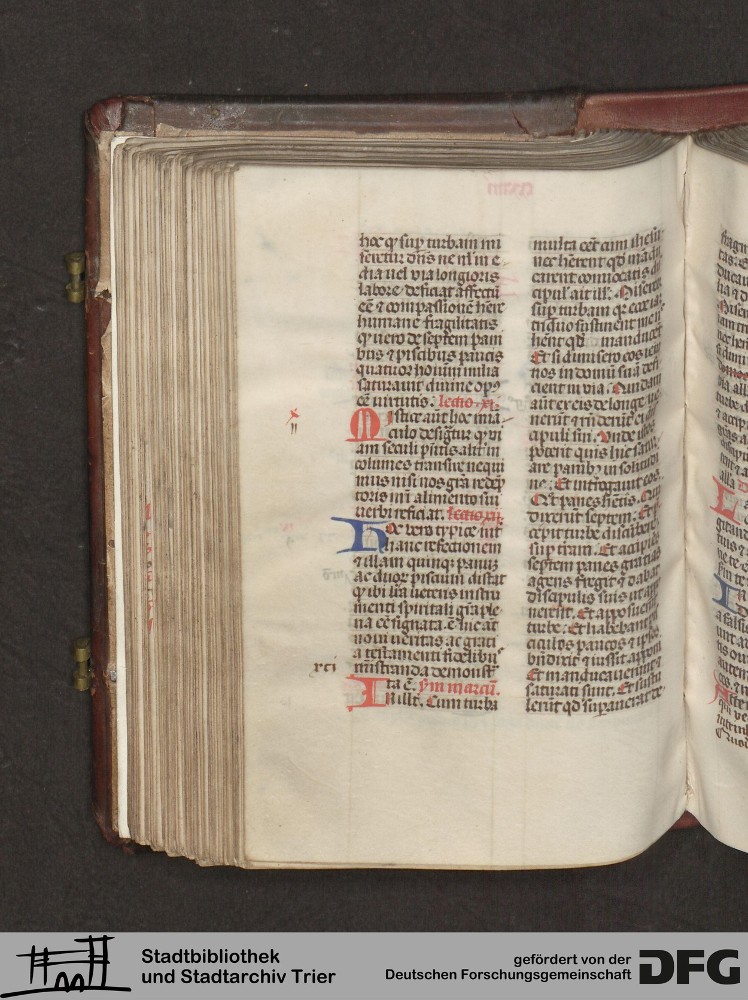 hoc qͥ sup̱ turbam mi
seretur dn̄s ne ul̓ in e
dia uel via longioris
labore deficiat affectū
eē ⁊ compassionē hēre
humane fragilitatis
qͥ uero de septem pani
bus ⁊ piscibus paucis
quatuor hoīm milia
saturauit diuine op̱s
eē uirtutis. lectio .xi.
Mistice aūt hoc mira
culo desigͣtur qͥ vi
am seculi p̄ntis alit̓ in
columes transire nequi
mus nisi nos grā redēp
toris nr̄i alimento sui
uerbi reficiat. lectio .xii.
Hoc vero typice int̓
hanc refectionem
⁊ illam quinqꝫ panuꝫ
ac duoꝝ piscium distat
qͥ ibi lr̄a veteris instru
menti spiritali grā ple
na eē signata. ē hic aūt
noui veritas ac grati
a testamenti fidelibꝰ
ministranda demonst̓
ta ē. sm̄ marcū.
In illo t̓. Cum turba
xci
multa eēt cum ihesu
nec hērent qd̓ māduc
carent conuocatis dis
cipul̓ ait ill̓. Misereor
sup̱ turbam qͥ ecce iā
triduo sustinent me n̄
hēnt qd̓ manducent
Et si dimisero eos ieiu
nos in domū suā defi
cient in via. Quidam
aūt ex eis de longe ue
nerūt ⁊ rn̄derūt ei dis
cipuli sui. Unde illos
poterit quis hic satur
are panibꝫ in solitudi
ne. Et int̓rogauit eos.
Qͦt panes hētis. Qui
dixerūt septem. Et p̄
cepit turbe discūbere
sup̱ t̓ram. Et accipiēs
septem panes gratias
agens fregit ⁊ dabat
discipulis suis ut appo
nerent. Et apposuerūt
turbe. Et habebant pis
ciculos paucos ⁊ ipsos
bn̄dixit ⁊ iussit apponi
Et manducauerūt ⁊
saturati sunt. Et sustu
lerūt qd̓ sup̱auerat de
Stadtbibliothek
und Stadtarchiv Trier
gefördert von der
Deutschen Forschungsgemeinschaft
DFG